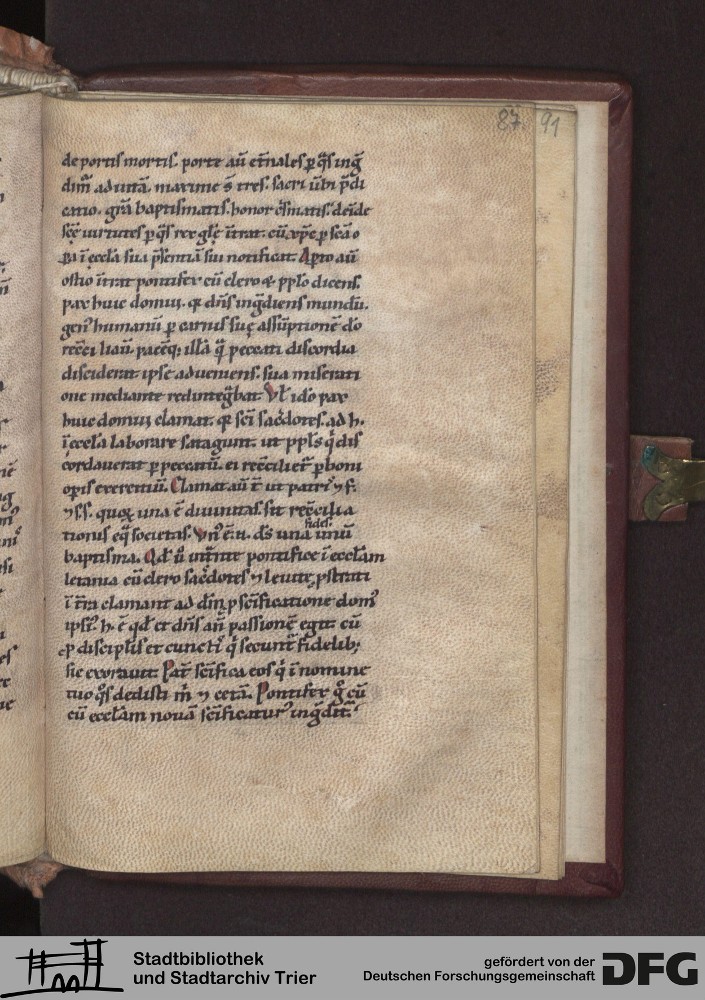 87. 91
de portis mortis. porte aū et̄nales ꝑ q̄s inḡ
dim̄ ad uitā. maxime s̄ tres. sacri ūbi p̄di
catio. gr̄a baptismatis. honor c̄smatis. deīde
sc̄ę uirtutes ꝑ q̄s rex gl̄ę īrat.
ī eccl̄a sua p̄sentiā sui notificat. Apto aū
ostio īrat pontifex cū clero & ppl̄o dicens.
pax huic domui. q̄ dn̄s inḡdiens mundū.
gen᾽ humanū ꝑ carnis suę assūptionē
pacē illā q̄ peccati discordia
disciderat ipse adueniens. sua miserati
one mediante redinteg̃bat. Vl̄ ido pax
huic domui clamat. q̄ sc̄i sac̄dotes. ad h.
ī eccl̄a laborare satagunt. ut ppl̄s q̄ dis
cordauerat ꝑ peccatū. ei rec̄cilięt̄ ꝑ boni
opis exercitiū. Clamat aū t̄ ut patri ⁊ f.
⁊ s.s. quoꝝ una ē diuinitas. sit rec̄cilia
tionis eq̄ societas. Vn᾽ ē .n. ds̄ una fides. unū
baptisma. Qd̄ ū intrāte pontifice ī eccl̄am
letania cū clero sac̄dotes ⁊ leuitę pstrati
ī t̄ra clamant ad dn̄m p sc̄ificatione dom᾽
ipsi᾽ h. ē qd̄ et dn̄s an̄ passionē egit cū
p discipl̄is et cunctis q̄ secunt̄ fidelib;
sic exorauit Pat̄ sc̄ifica eos q̄ ī nomine
tuo q̄s dedisti m̄ ⁊ cetā. Pontifex g̊ cū
cū eccl̄am nouā sc̄ificatur᾽ inḡdit̄.
Stadtbibliothek
und Stadtarchiv Trier
gefördert von der
Deutschen Forschungsgemeinschaft
DFG